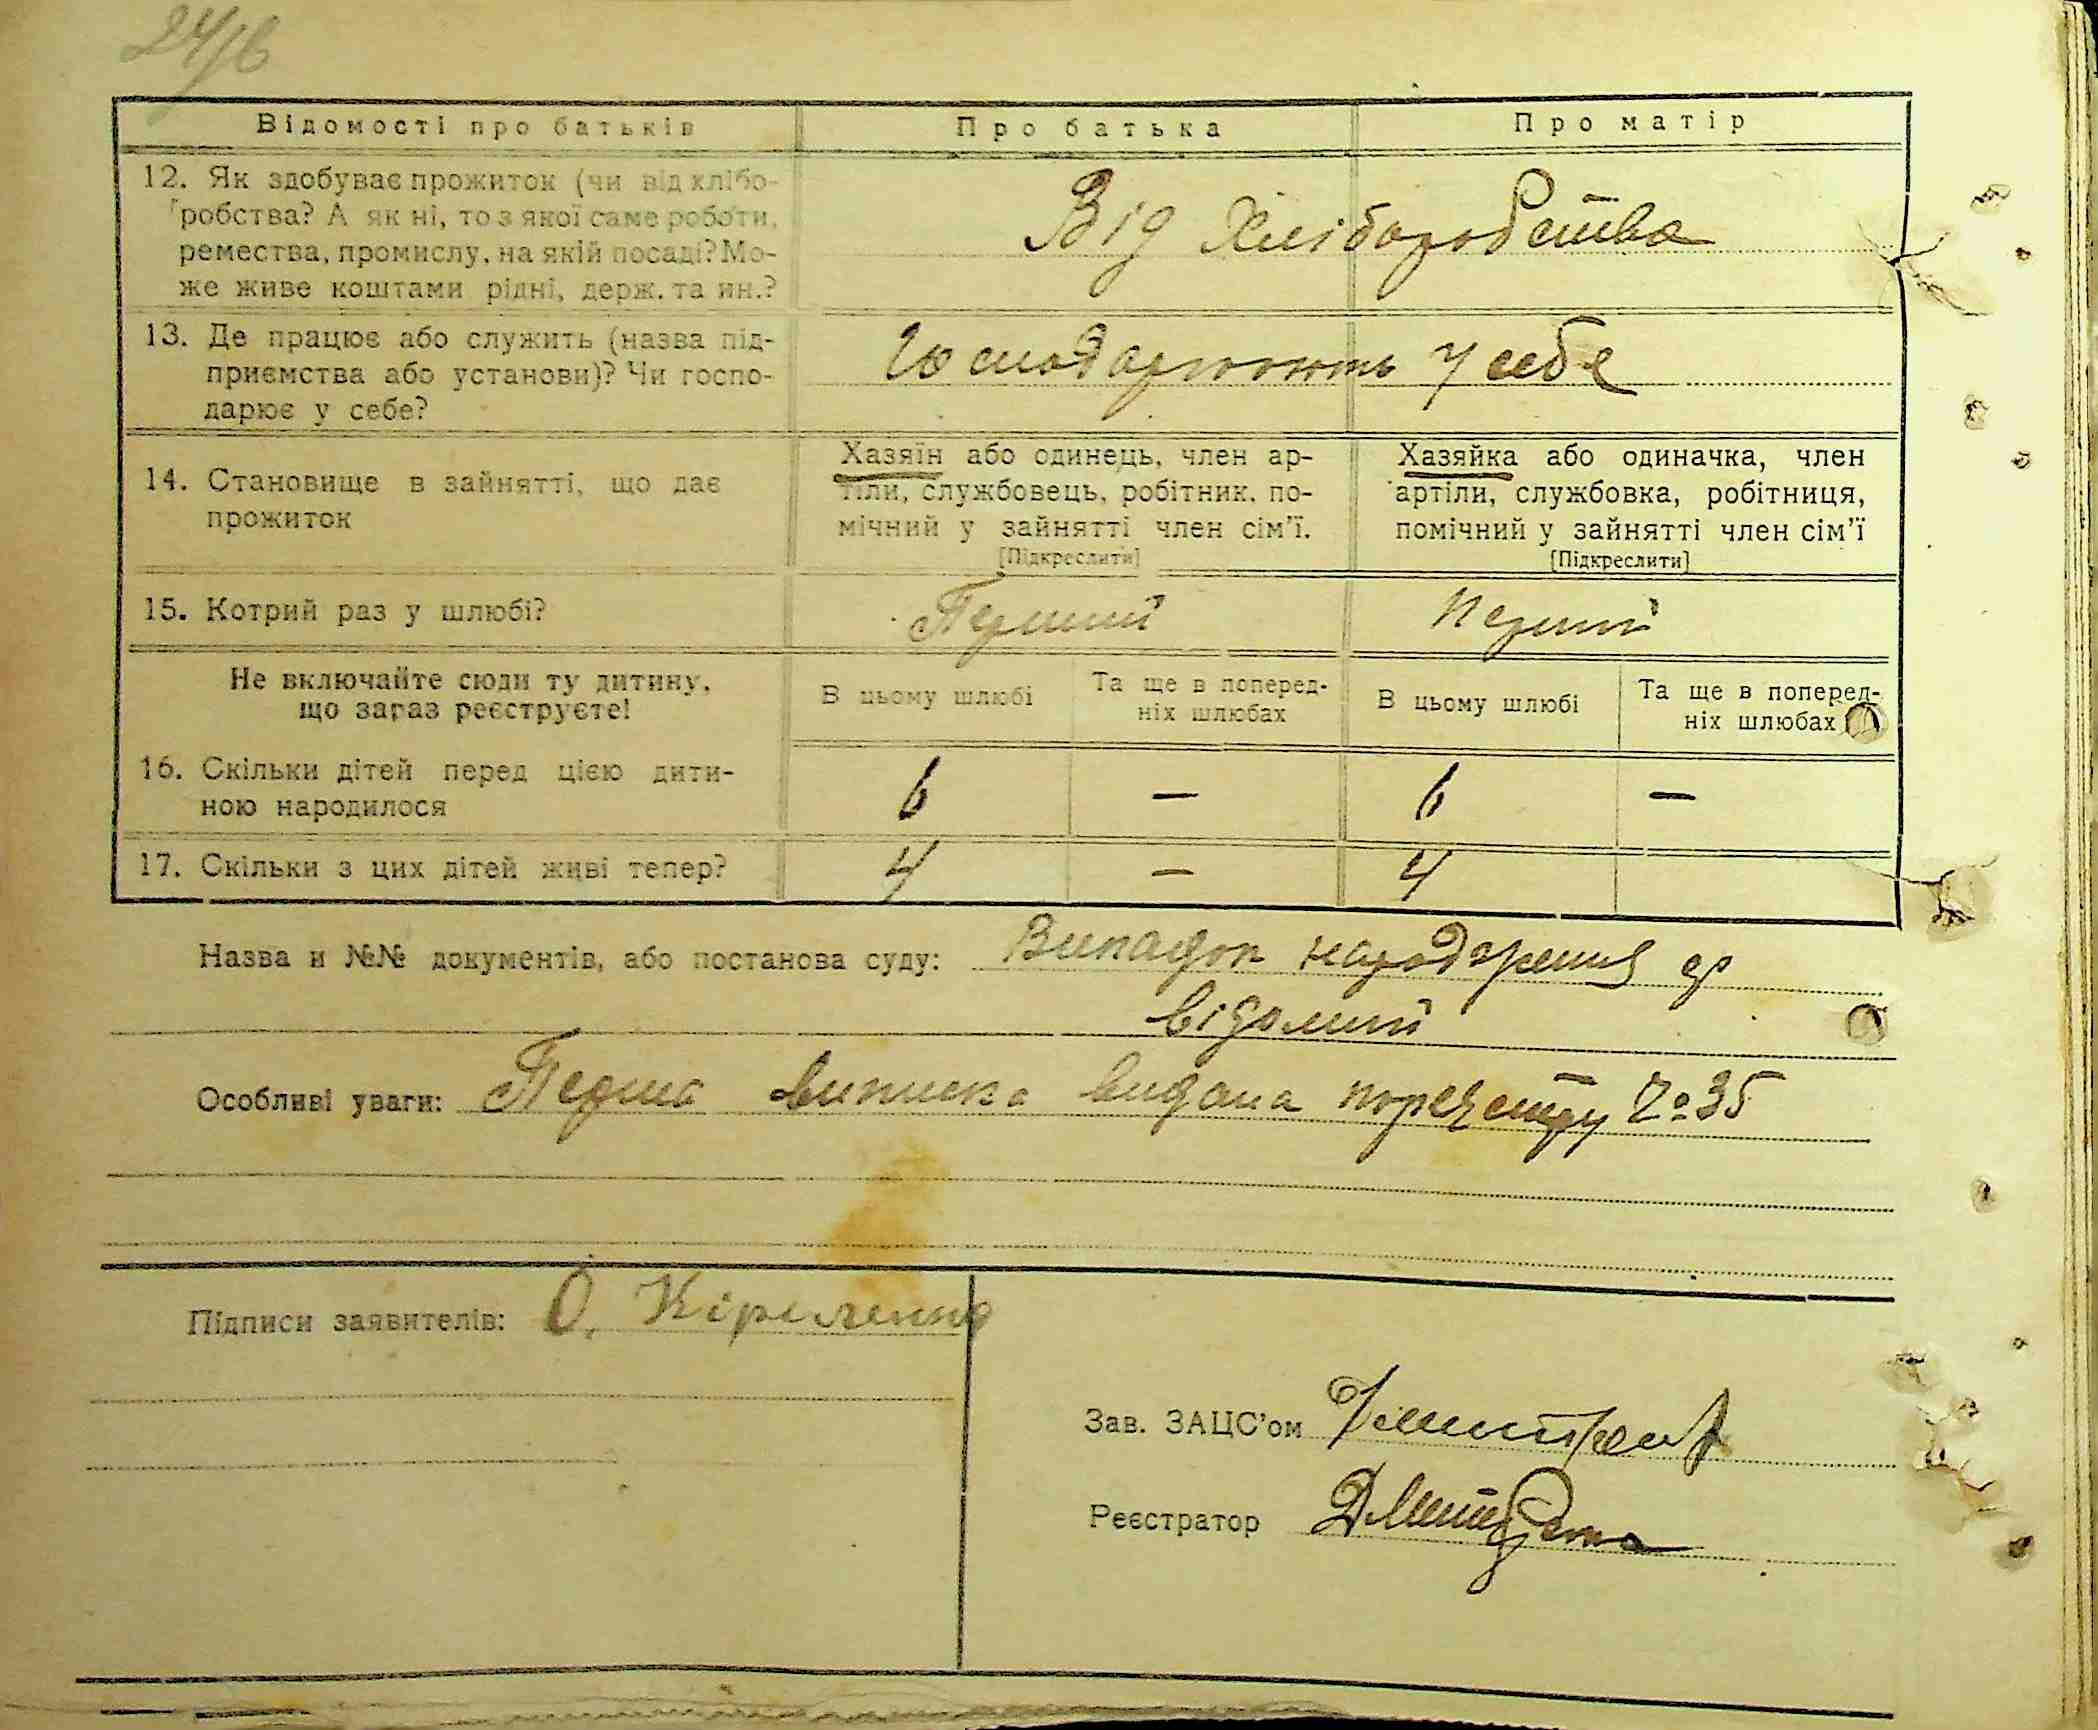 24/6
Відомості про батьків
Про батька
Про матір
12. Як здобуває прожиток (чи від хлібо-
робства? А як ні, то з якої саме роботи,
ремества, промислу, на якій посаді? Мо-
же живе коштами рідні, держ. та ин.?
Від Хліборобства
13. Де працює або служить (назва під-
приємства або установи)? Чи госпо-
дарює у себе?
Господарюють у себе
14. Становище в зайнятті, що дає
прожиток
Хазяїн або одинець, член ар-
тіли, службовець, робітник, по-
мічний у зайнятті член сім’ї.
[Підкреслити]
Хазяйка або одиначка, член
артіли, службовка, робітниця,
помічний у зайнятті член сім’ї
[Підкреслити]
15. Котрий раз у шлюбі?
Перший
Перший
Не включайте сюди ту дитину,
що зараз реєструєте!
В цьому шлюбі
Та ще в поперед-
ніх шлюбах
В цьому шлюбі
Та ще в поперед-
ніх шлюбах
16. Скільки дітей перед цією дити-
ною народилося
6 — 6 —
17. Скільки з цих дітей живі тепер?
4 — 4
Назва и №№ документів, або постанова суду: Випадок народження
відомий
Особливі уваги: Перша виписка видана по реєстру № 35
Підписи заявителів: О. Кіриленко
Зав. ЗАЦС’ом
Реєстратор